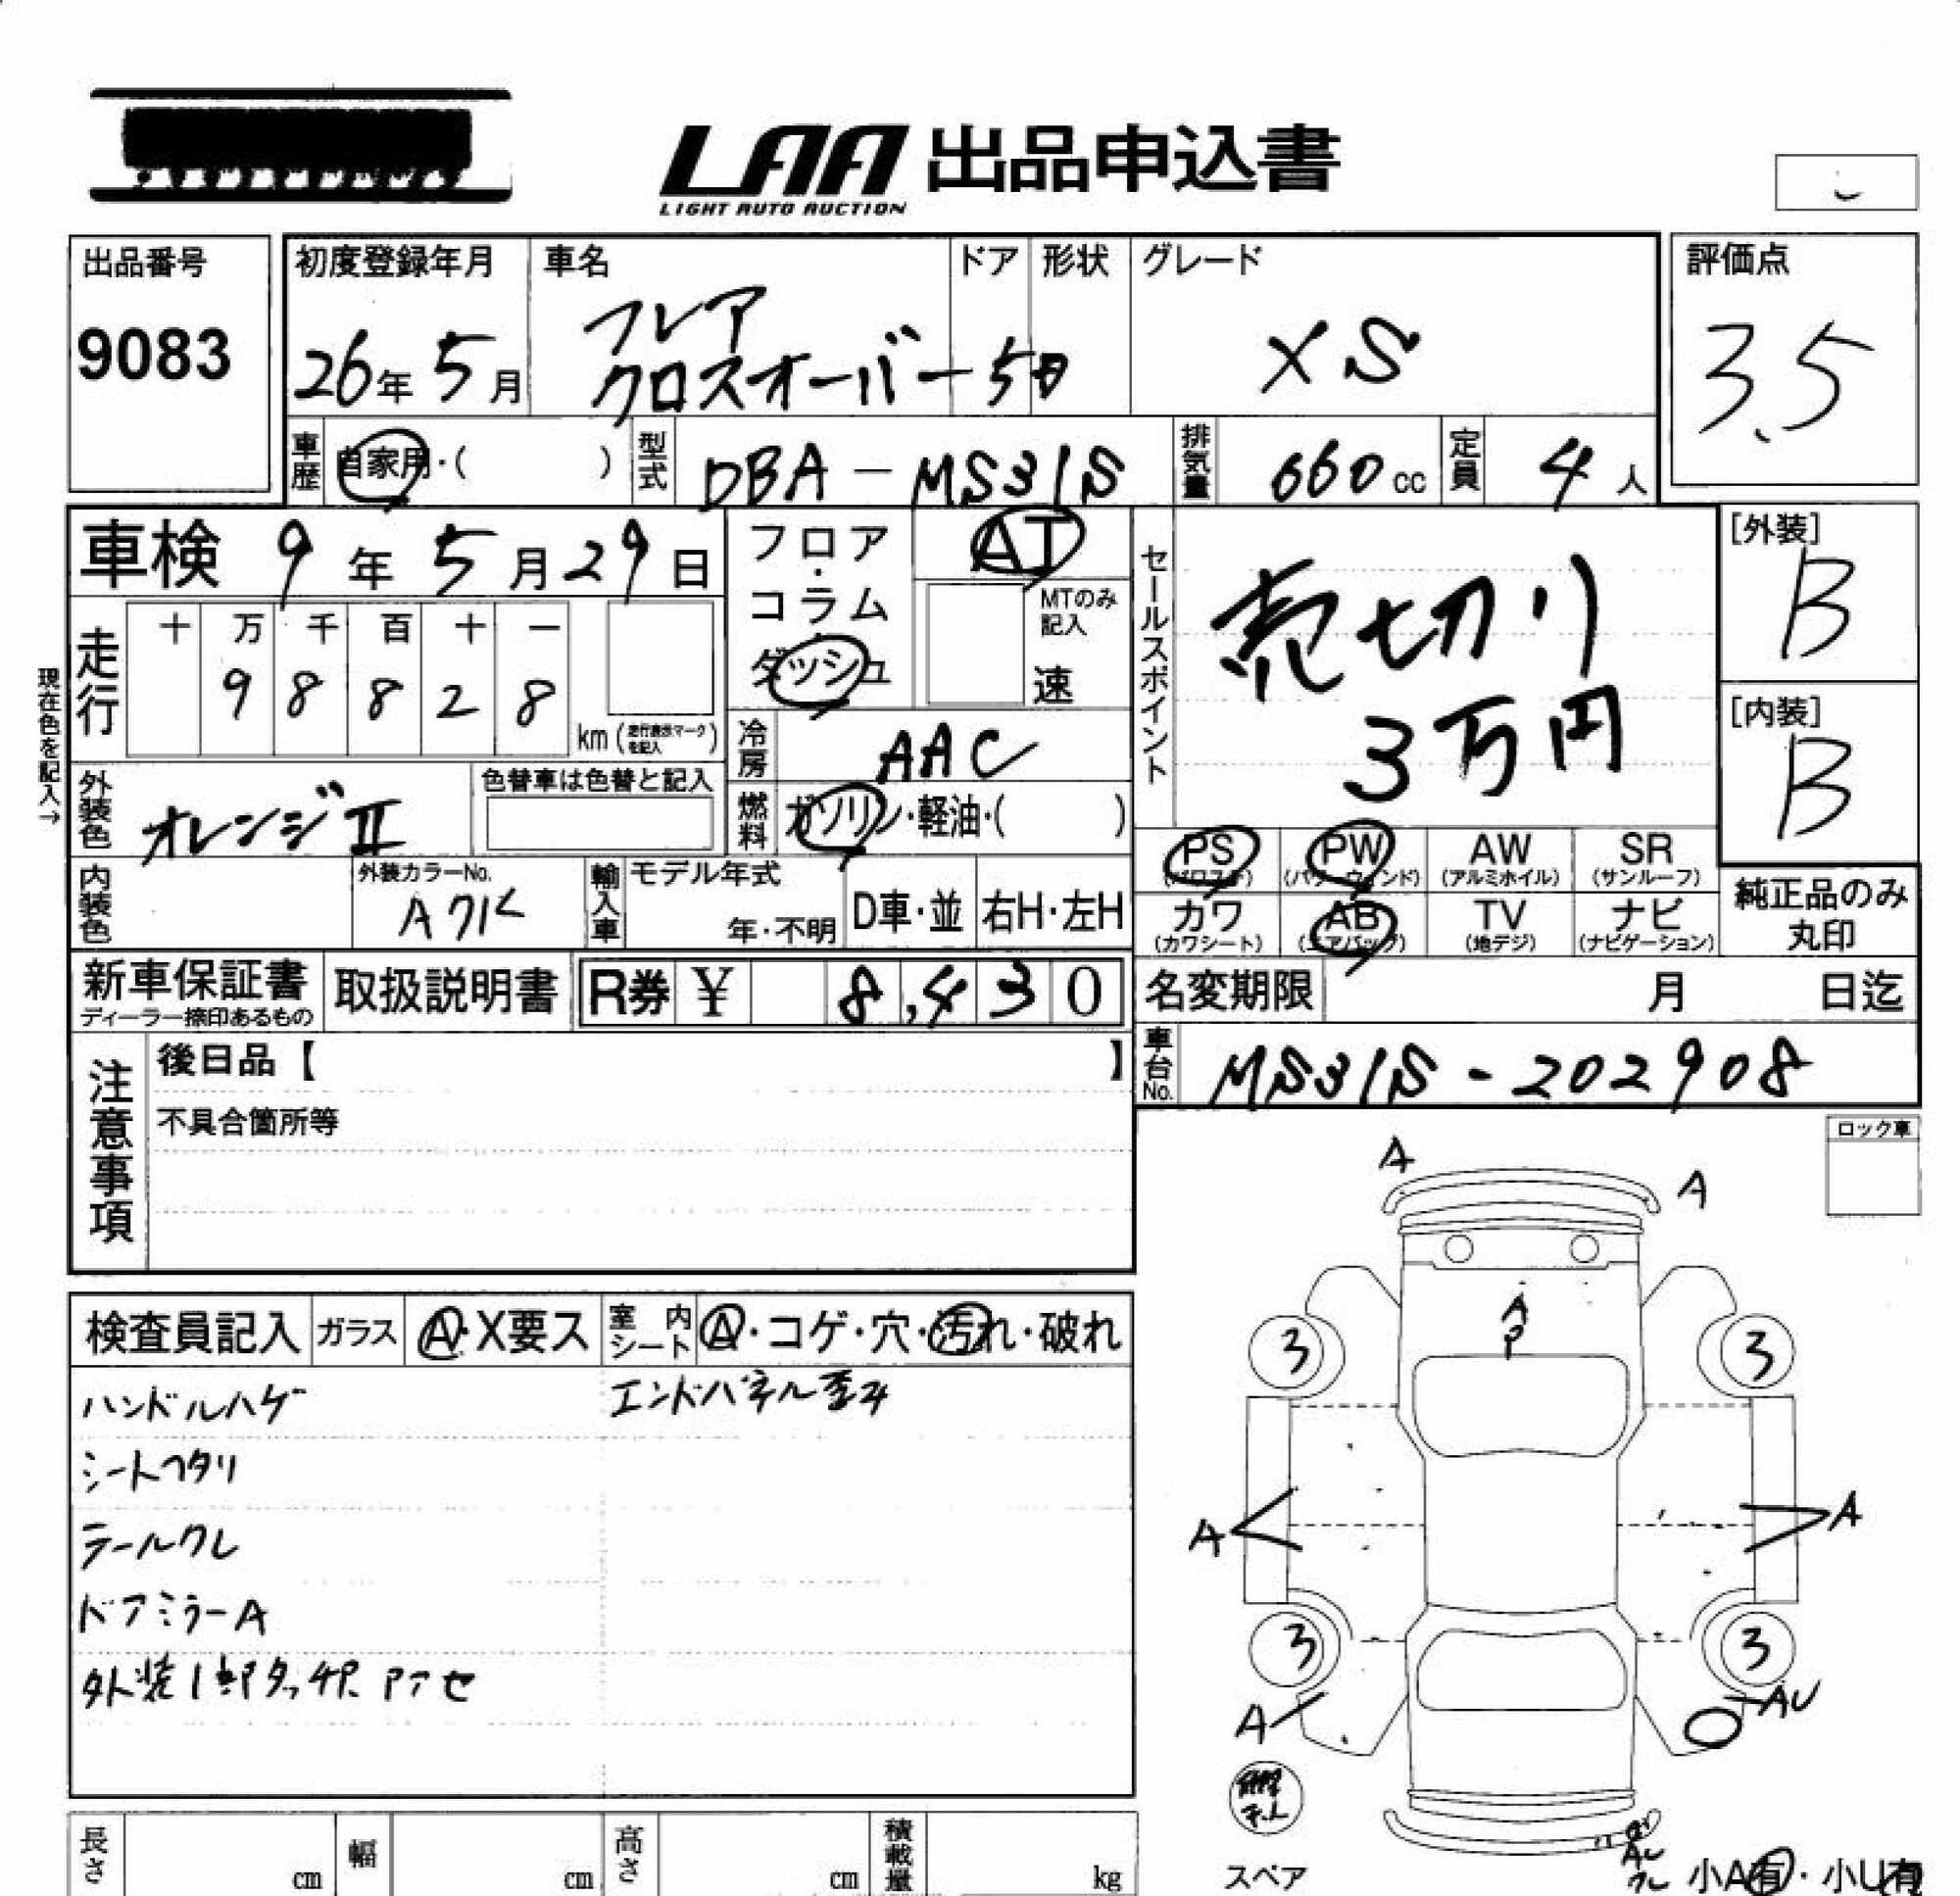 LAA 出品申込書
LIGHT AUTO AUCTION
出品番号
9083
初度登録年月
26年 5月
車名
フレア
クロスオーバー
ドア
5D
形状
グレード
XS
評価点
3.5
車歴
自家用・( )
型式
DBA-MS31S
排気量
660cc
定員
4人
車検 9年 5月29日
フロア・コラム
ダッシュ
AT
MTのみ記入
速
セールスポイント
売切り
3万円
[外装]
B
[内装]
B
現在色を記入→
走行
十 万 千 百 十 一
9 8 8 2 8
km (走行表示マークを記入)
冷房
AAC
外装色
オレンジⅡ
色替車は色替と記入
燃料
ガソリン・軽油・( )
PS
(パワステ)
PW
(パワーウィンド)
AW
(アルミホイル)
SR
(サンルーフ)
カワ
(カワシート)
AB
(エアバッグ)
TV
(地デジ)
ナビ
(ナビゲーション)
純正品のみ
丸印
内装色
外装カラーNo.
輸入車
モデル年式
年・不明
D車・並
右H・左H
新車保証書
ディーラー捺印あるもの
取扱説明書
R券 ¥ 8,430
名変期限 月 日迄
車台No.
MS31S-202908
注意事項
後日品【 】
不具合箇所等
ロック車
検査員記入
ガラス
A・X要ス
室内シート
A・コゲ・穴・汚れ・破れ
ハンドルハゲ
エンドパネル歪み
シートヘタリ
テールワレ
ドアミラーA
A
A
A
P
3
3
A
A
3
3
A
AU
スペア
小A有・小U有
長さ cm
幅 cm
高さ cm
積載量 kg